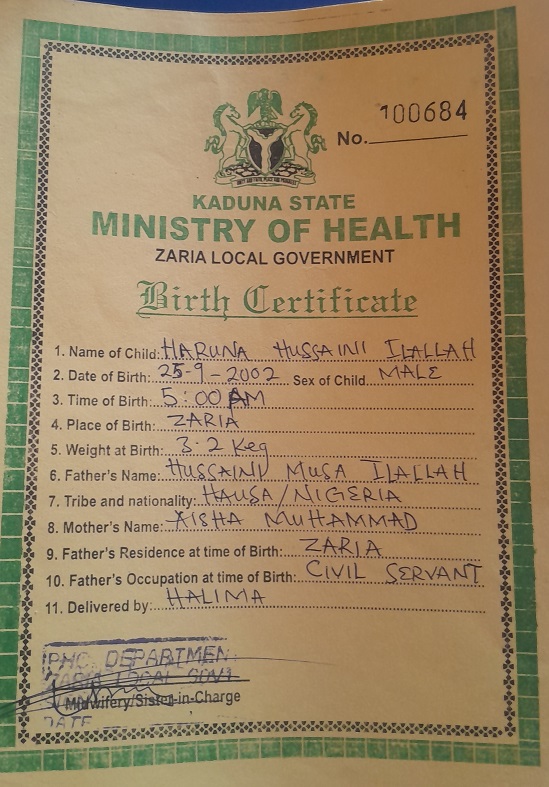 100684
No.
KADUNA STATE
MINISTRY OF HEALTH
ZARIA LOCAL GOVERNMENT
Birth Certificate
1. Name of Child: HARUNA HUSSAINI ILALLAH
2. Date of Birth: 25-9-2002 Sex of Child MALE
3. Time of Birth: 5:00 AM
4. Place of Birth: ZARIA
5. Weight at Birth: 3.2 Keg
6. Father's Name: HUSSAINI MUSA ILALLAH
7. Tribe and nationality: HAUSA/NIGERIA
8. Mother's Name: AISHA MUHAMMAD
9. Father's Residence at time of Birth: ZARIA
10. Father's Occupation at time of Birth: CIVIL SERVANT
11. Delivered by: HALIMA
PHC DEPARTMEN
ZARIA LOCAL GOVT
Midwifery/Sister-in-Charge
DATE